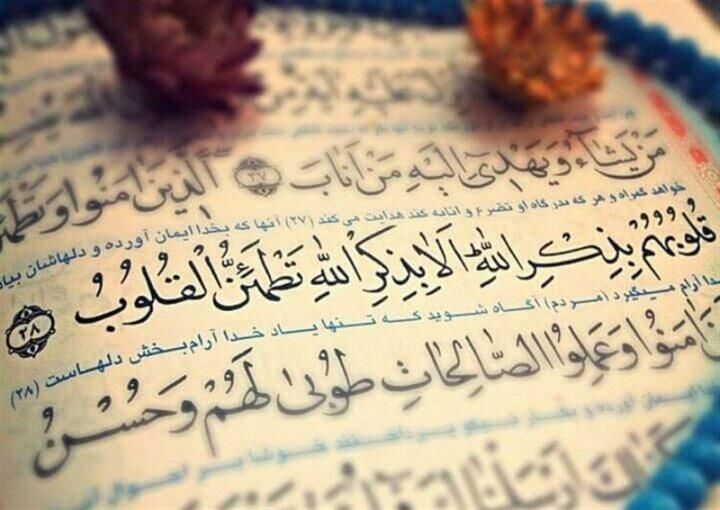 مَنْ يَشَآءُ وَيَهْدِىٓ اِلَيْهِ مَنْ اَنَابَ ﴿٢٧﴾ اَلَّذِينَ اٰمَنُوا وَتَطْمَئِنُّ
خواهد گمراه و هر که بدرگاه او تضرع و انابه کند هدایت می کند (۲۷) آنها که بخدا ایمان آورده و دلهاشان بیاد
قُلُوبُهُمْ بِذِكْرِ اللّٰهِ اَلَا بِذِكْرِ اللّٰهِ تَطْمَئِنُّ الْقُلُوبُ ﴿٢٨﴾
خدا آرام میگیرد (مردم) آگاه شوید که تنها یاد خدا آرام‌بخش دلهاست (۲۸)
اٰمَنُوا وَعَمِلُوا الصَّالِحَاتِ طُوبٰى لَهُمْ وَحُسْنُ
ایمان آورده و بکار نیکو پرداختند خوشا بر احوال آنها